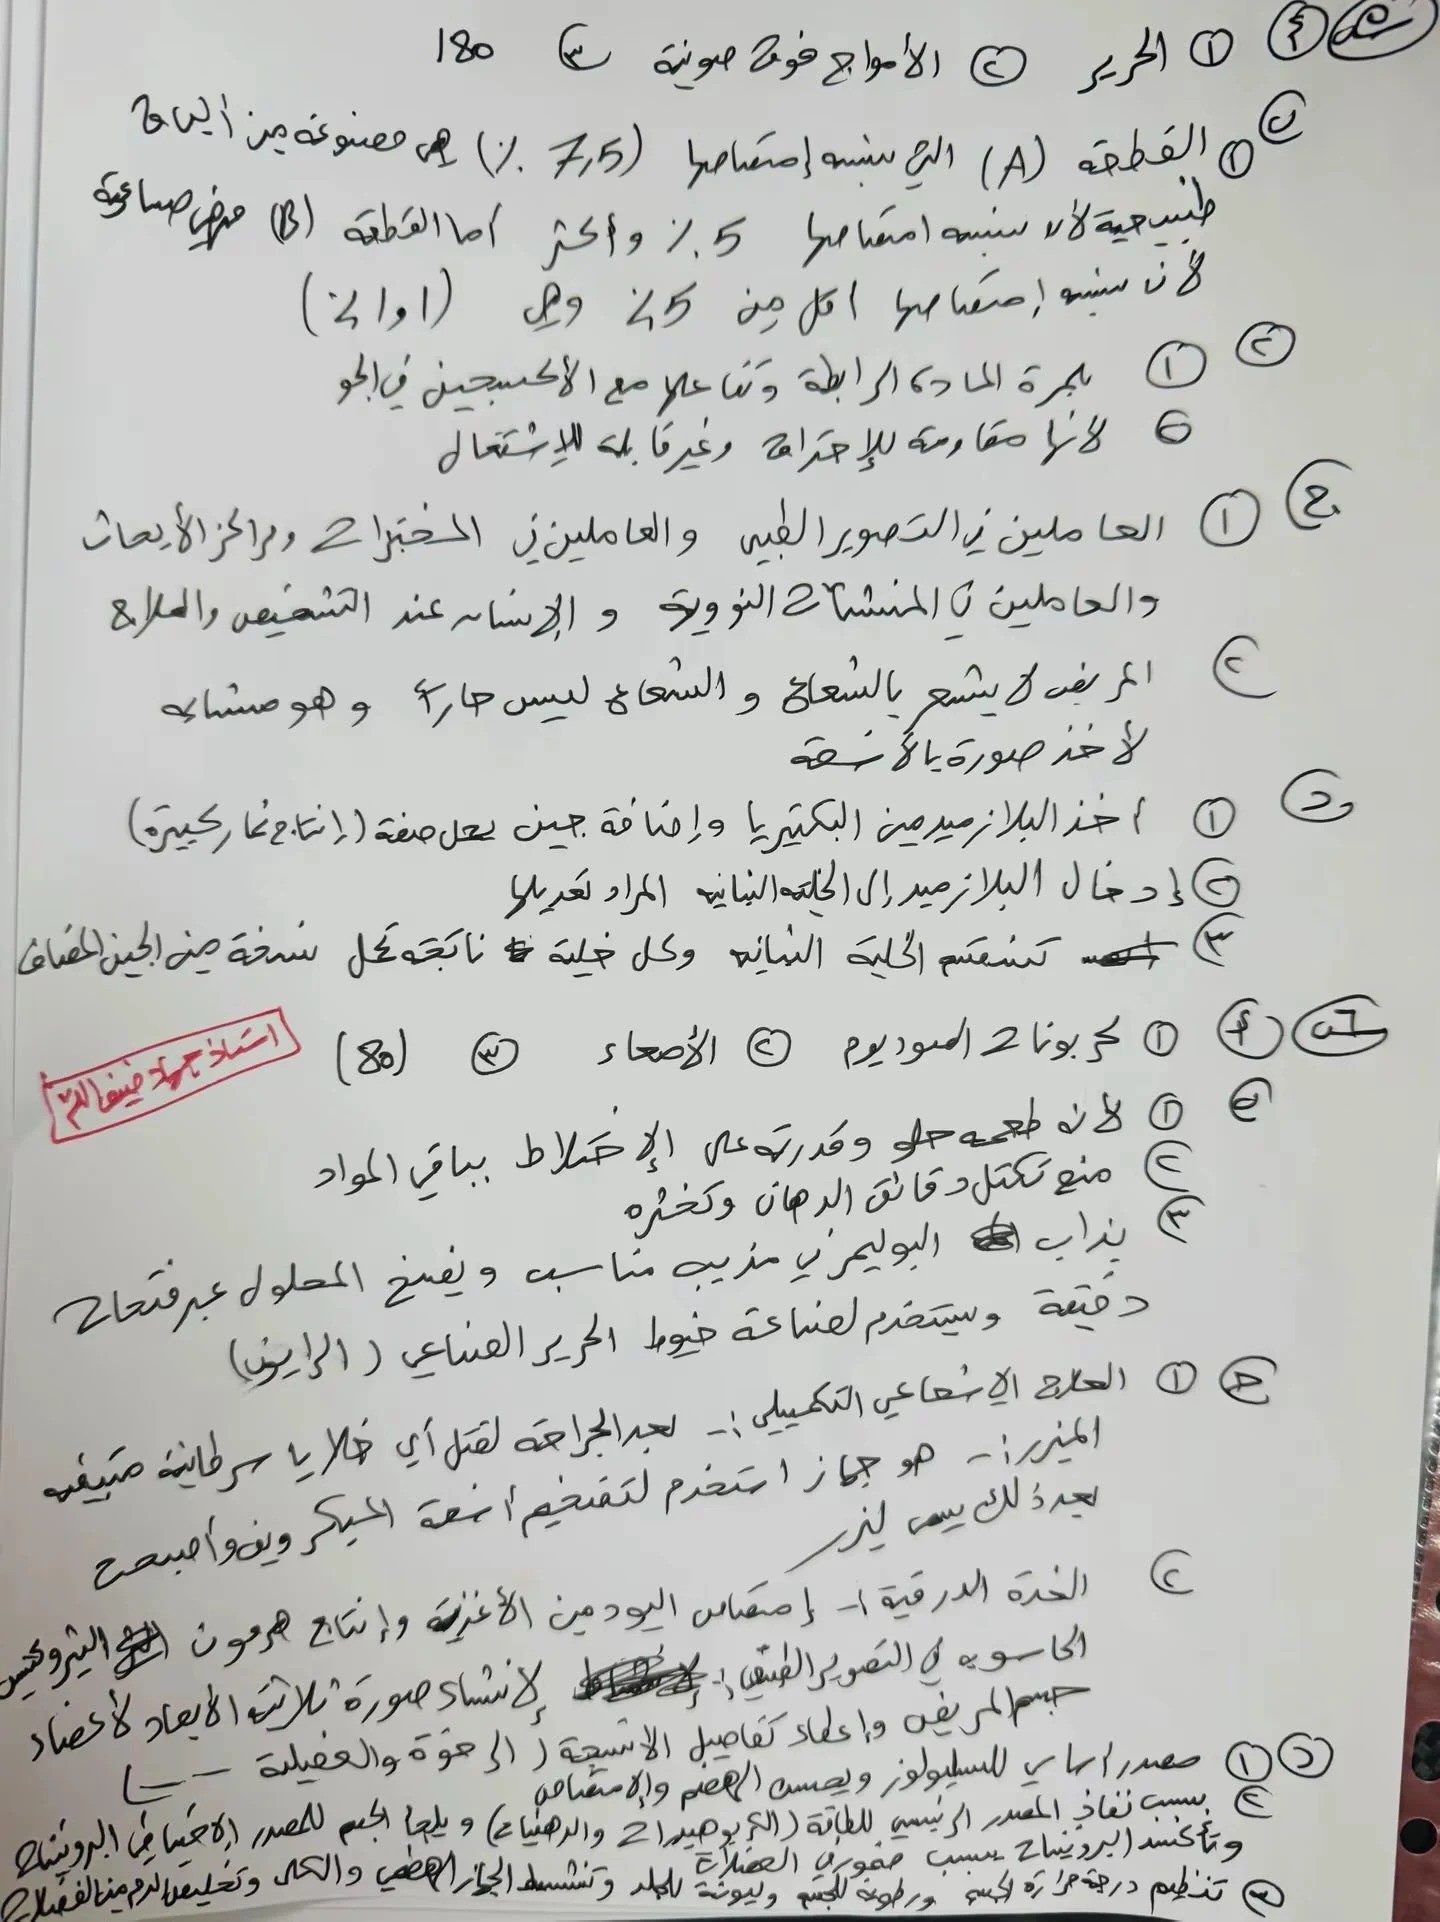 س٥ أ ① الحرير ② الأمواج فوق صوتية ③ 180
ب ① القطعة (A) التي نسبة إمتصاصها (7,5 %) هي مصنوعة من ألياف
طبيعية لأن نسبة امتصاصها 5 % وأكثر أما القطعة (B) فهي صناعية
لأن نسبة إمتصاصها اقل من 5 % وهي (١ و١ %)
② ① بلمرة المادة الرابطة وتفاعلها مع الأكسجين في الجو
② لانها مقاومة للإحتراق وغير قابلة للإشتعال
ج ① العاملين في التصوير الطبي والعاملين في المختبرات ومراكز الأبحاث
والعاملين في المنشآت النووية و الإنسان عند التشخيص والعلاج
② المريض لا يشعر بالشعاع و الشعاع ليس حاراً و هو مشابه
لأخذ صورة بالأشعة
د ① أخذ البلازميد من البكتيريا وإضافة جين يحمل صفة (إنتاج ثمار كبيرة)
② إدخال البلازميد إلى الخلية النباتية المراد تعديلها
③ تنقسم الخلية النباتية وكل خلية ناتجة تحمل نسخة من الجين المضاف
س٦ أ ① كربونات الصوديوم ② الأمعاء ③ (80)
استاذ جهاد ضيف الله
ب ① لأنه طعمه حلو وقدرته على الإختلاط بباقي المواد
② منع تكتل دقائق الدهان وتخثره
③ يذاب البوليمر في مذيب مناسب ويضخ المحلول عبر فتحات
دقيقة ويستخدم لصناعة خيوط الحرير الصناعي (الرايون)
ج ① العلاج الإشعاعي التكميلي :- بعد الجراحة لقتل أي خلايا سرطانية متبقية
الميزر :- هو جهاز استخدم لتضخيم أشعة الميكرويف وأصبح
بعد ذلك يسمى ليزر
② الغدة الدرقية :- إمتصاص اليود من الأغذية وإنتاج هرمون الثيروكسين
الحاسوب في التصوير الطبقي :- لإنشاء صورة ثلاثية الابعاد لأعضاء
جسم المريض وإعطاء تفاصيل الانسجة (الرخوة والعضلية --)
د ① مصدر أساسي للسيليولوز ويحسن الهضم والإمتصاص
② بسبب نفاذ المصدر الرئيسي للطاقة (الكربوهيدرات والدهنيات) ويلجأ الجسم للمصدر الإحتياطي البروتينات
وتأكسد البروتينات يسبب ضمور في العضلات
③ تنظيم درجة حرارة الجسم ورطوبة للجسم وليونة للجلد وتنشيط الجهاز الهضمي والكلى وتخليص الدم من الفضلات